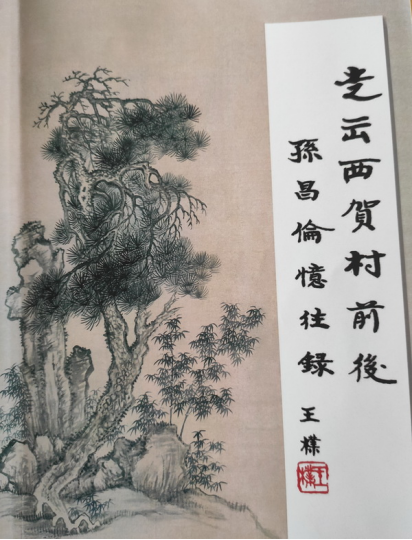 走出西贺村前後
孫昌倫憶往録
王楪